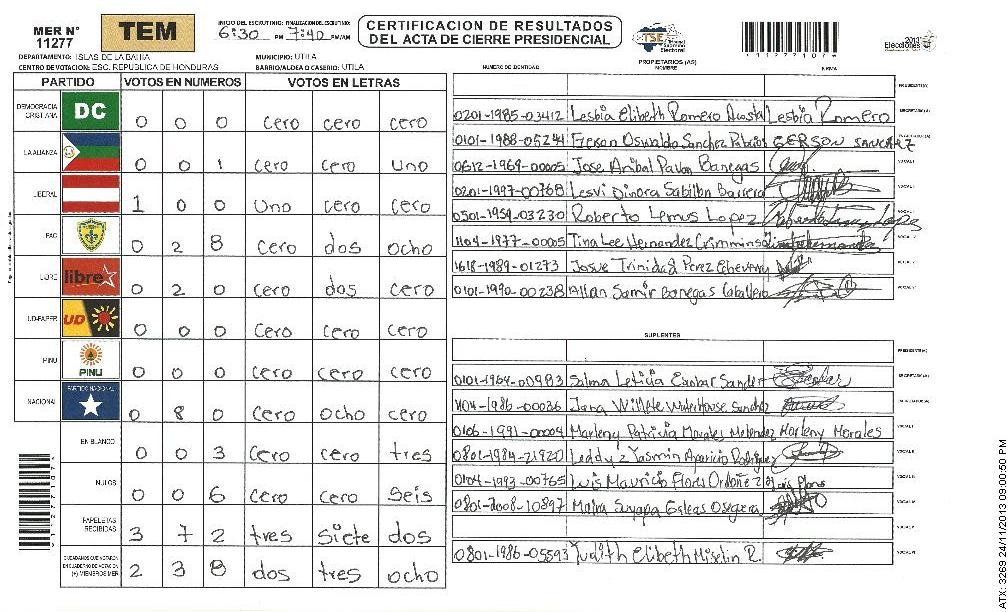 MER N° 11277
TEM
INICIO DEL ESCRUTINIO: 6:30 PM FINALIZACION DEL ESCRUTINIO: 7:40 PM/AM
CERTIFICACION DE RESULTADOS
DEL ACTA DE CIERRE PRESIDENCIAL
TSE Tribunal Supremo Electoral
2013 Elecciones
DEPARTAMENTO: ISLAS DE LA BAHIA MUNICIPIO: UTILA
CENTRO DE VOTACION: ESC. REPUBLICA DE HONDURAS BARRIO/ALDEA O CASERIO: UTILA
PARTIDO VOTOS EN NUMEROS VOTOS EN LETRAS
DEMOCRACIA CRISTIANA DC 0 0 0 cero cero cero
LA ALIANZA 0 0 1 cero cero uno
LIBERAL 1 0 0 Uno cero cero
PAC 0 2 8 cero dos ocho
LIBRE libre 0 2 0 cero dos cero
UD-FAPER UD 0 0 0 cero cero cero
PINU PINU 0 0 0 cero cero cero
NACIONAL PARTIDO NACIONAL 0 8 0 cero ocho cero
EN BLANCO 0 0 3 cero cero tres
NULOS 0 0 6 cero cero seis
PAPELETAS RECIBIDAS 3 7 2 tres siete dos
CIUDADANOS QUE VOTARON EN CUADERNO DE VOTACION (+) MIEMBROS MER 2 3 8 dos tres ocho
NUMERO DE IDENTIDAD PROPIETARIOS (AS) NOMBRE FIRMA
PRESIDENTE(A)
0201-1985-03412 Lesbia Elibeth Romero Acosta Lesbia Romero SECRETARIO(A)
0101-1988-05244 Gerson Oswaldo Sanchez GERSON SANCHEZ
0612-1969-00005 Jose Anibal Pavon Banegas VOCAL I
0201-1987-00768 Lesvi Dinora Sabillon Barrera
0501-1954-03230 Roberto Lemus Lopez
1104-1977-00005 Tina Lee Hernandez Crimmins
1618-1989-01273 Josue Trinidad Perez Echeverry
0101-1990-00238 Allan Samir Banegas Caballero
SUPLENTES
PRESIDENTE(A)
0101-1964-00983 Salma Leticia Escobar Sander Escobar SECRETARIO(A)
1104-1986-00036 Waterhouse Sanchez
0106-1991-00004 Marleny Patrisia Morales Melendez Marleny Morales
0801-1984-21920 Yasmin Aparicio Rodriguez
0104-1993-00765 Luis Mauricio Flores Ordoñez Luis Flores
0801-2008-10897 Maira Suyapa
0801-1986-05593 Judith Elibeth Miselin R.
ATX: 3269 24/11/2013 09:00:50 PM